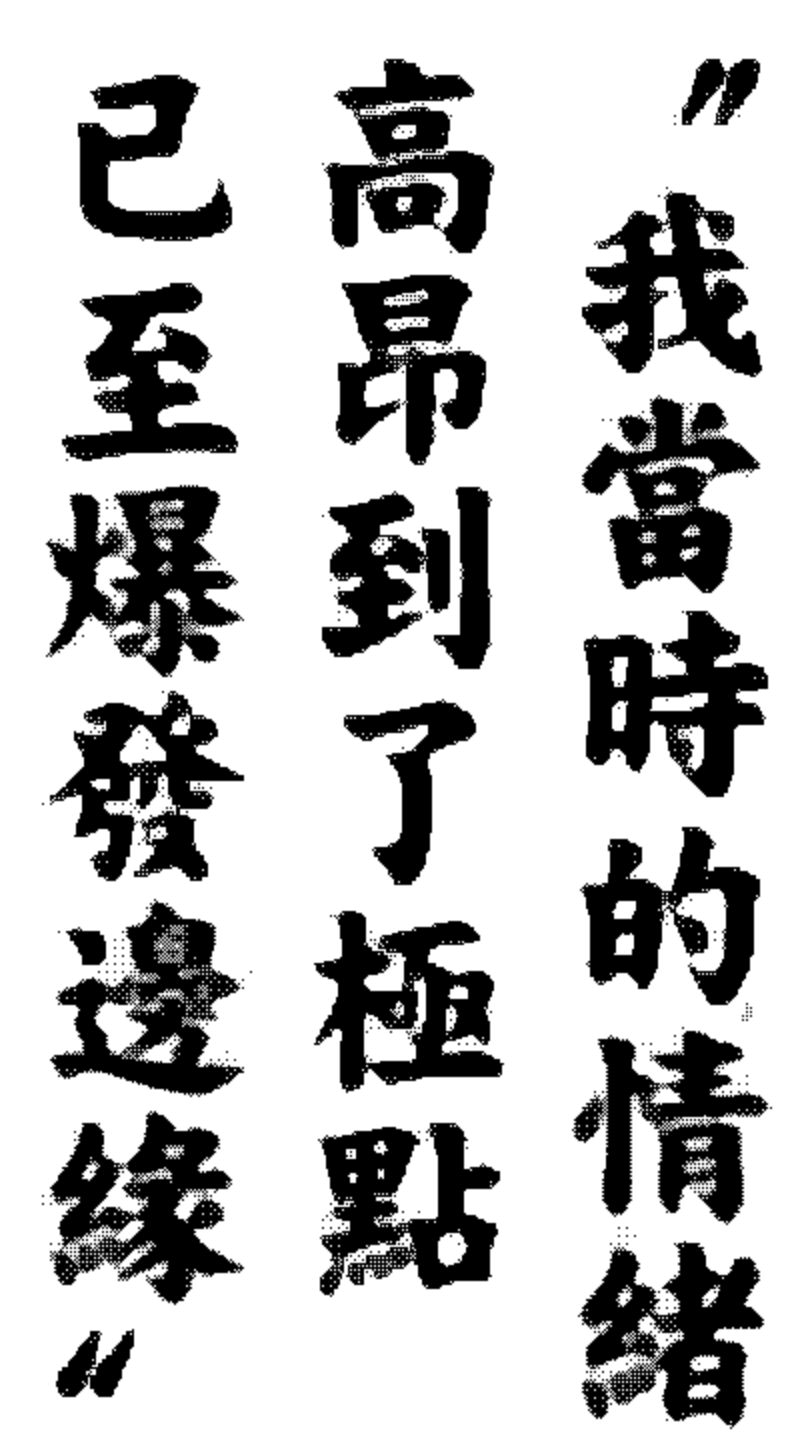 "我當時的情緒
高昂到了極點
已至爆發邊緣"